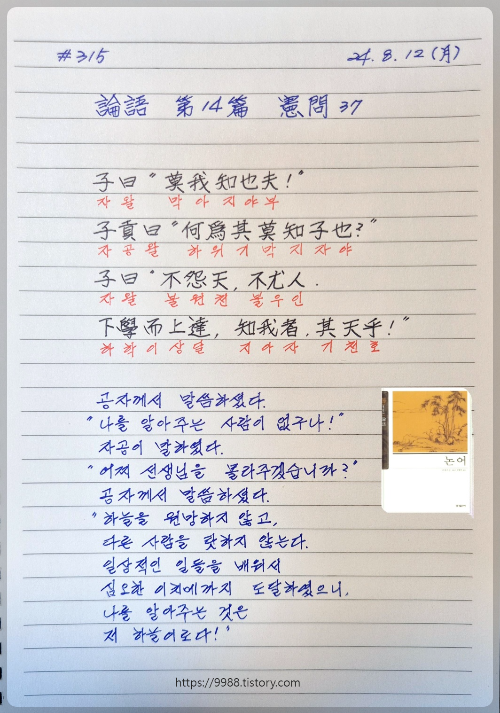 #315
24. 8. 12 (月)
論語 第14篇 憲問 37
子曰 "莫我知也夫!"
자 왈 막 아 지 야 부
子貢曰 "何爲其莫知子也?"
자 공 왈 하 위 기 막 지 자 야
子曰 "不怨天, 不尤人.
자 왈 불 원 천 불 우 인
下學而上達, 知我者, 其天乎!"
하 학 이 상 달 지 아 자 기 천 호
공자께서 말씀하셨다.
"나를 알아주는 사람이 없구나!"
자공이 말하였다.
"어찌 선생님을 몰라주겠습니까?"
공자께서 말씀하셨다.
"하늘을 원망하지 않고,
다른 사람을 탓하지 않는다.
일상적인 일들을 배워서
심오한 이치에까지 도달하였으니,
나를 알아주는 것은
저 하늘이로다!"
논어
https://9988.tistory.com